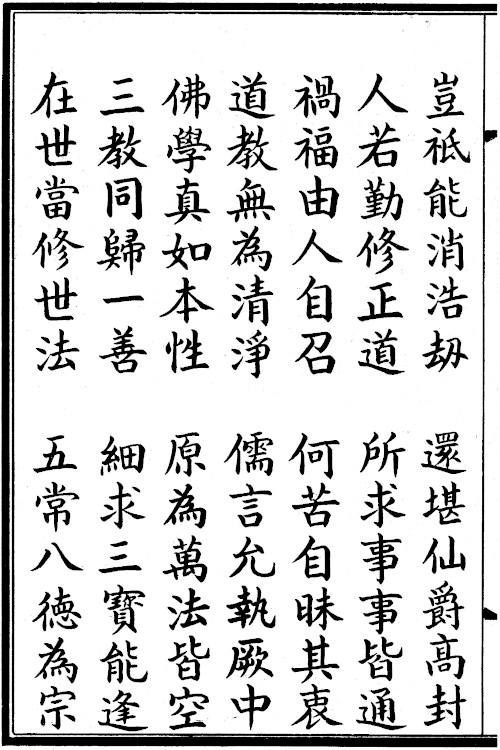 豈祇能消浩劫 還堪仙爵高封
人若勤修正道 所求事事皆通
禍福由人自召 何苦自昧其衷
道教無為清淨 儒言允執厥中
佛學真如本性 原為萬法皆空
三教同歸一善 細求三寶能逢
在世當修世法 五常八德為宗